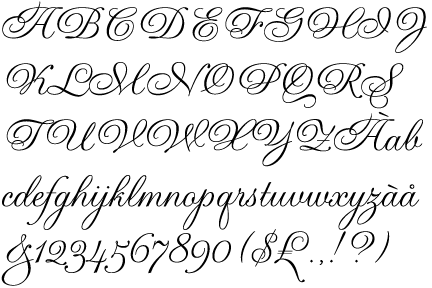 ABCDEFGHIJ
KLMNOPQRS
TUVWXYZÀab
cdefghijklmnopqrstuvwxyzàå
&1234567890($£.,!?)